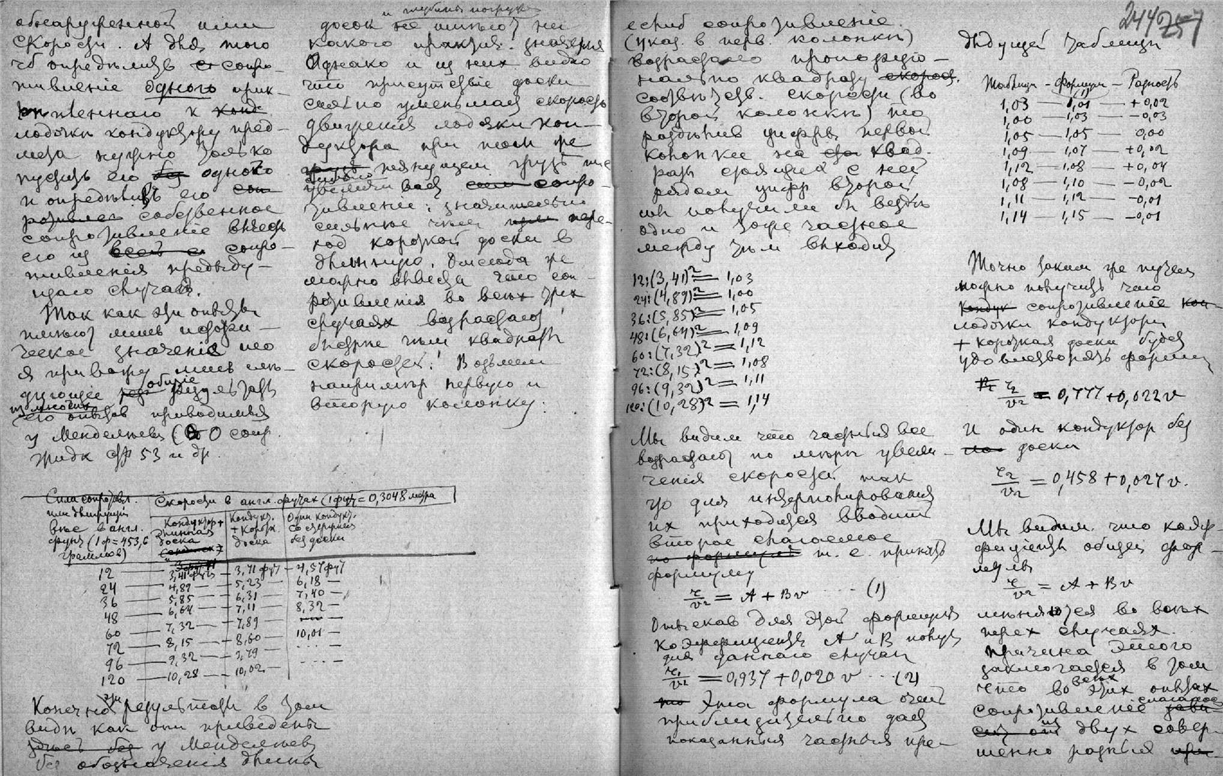 обнаруженной ими
скорости. А для того
чтоб определить сопро-
тивление одного прик-
к
лодочки кондуктору пред-
мета нужно только
пустить его одного
и определить его
собственное
сопротивление вычесть
его из сопро-
тивления предыду-
щаго случая.
Так как эти опыты
имеют лишь истори-
ческое значение то
я привожу лишь сле-
дующее общие результаты
опытов приводимыя
у Менделеева (О сопр.
жидк стр 53 и др.
досок не имеют ни
какого практич. значения
Однако и из них видно
что присутствие доски
сильно уменьшает скорость
движения лодочки кон-
дуктора при том же
груз
увеличивает сопро-
тивление, значительно
сильнее чем пере-
ход короткой доски в
длинную. Отсюда же
можно вывести что со-
ротивления во всех трех
случаях возрастают
быстрее чем квадраты
скоростей! Возьмем
например первую и
вторую колонку:
Сила сопротивл.
или движущий
вес в англ.
фунт (1ф=453,6
граммов)
Скорости в англ. футах (1 фут = 0,3048 метра
Кондуктор + длинная доска
Кондукт. + коротк. доска
Один кондукт. со стержнем без доски
12 — 3,41 фут — 3,71 фут — 4,37 фут
24 — 4,89 — 5,23 — 6,18 —
36 — 5,85 — 6,31 — 7,40 —
48 — 6,64 — 7,11 — 8,32 —
60 — 7,32 — 7,89
72 — 8,15 — 8,60 — 10,01 —
96 — 9,32 — 9,79
120 — 10,28 — 10,02 —
Конечно эти результаты в том
виде как они приведены
у Менделеева
без обозначения длины
244
257
если б сопротивление
(указ. в перв. колонке)
возрастало пропорцио-
нально квадрату скорост.
соответств. скорости (во
второй колонке) то
разделив цифры первой
колонки на квад-
раты стоящих с ней
рядом цифр второй
мы получили бы везде
одно и тоже частное
между тем выходит
12:(3,41)² = 1,03
24:(4,89)² = 1,00
36:(5,85)² = 1,05
48:(6,64)² = 1,09
60:(7,32)² = 1,12
72:(8,15)² = 1,08
96:(9,32)² = 1,11
120:(10,28)² = 1,14
Мы видим что частныя все
возрастают по мере увели-
чения скорости так
что для интерполирования
их приходится вводить
второе слагаемое
т. е. принять
формулу
r/v² = A + Bv ..... (1)
Отыскав для этой формулы
коэффициенты A и B получ
для даннаго случая
r₁/v² = 0,937 + 0,020 v ... (2)
Эта формула очень
приблизительно дает
показанныя частныя пре-
дыдущей таблицы
Таблица - Формула - Разность
1,03 — 1,01 — +0,02
1,00 — 1,03 — -0,03
1,05 — 1,05 — 0,00
1,09 — 1,07 — +0,02
1,12 — 1,08 — +0,04
1,08 — 1,10 — -0,02
1,11 — 1,12 — -0,01
1,14 — 1,15 — -0,01
Точно таким же путем
можно получить что
сопротивление
лодочки кондуктора
+ короткая доска будет
удовлетворять формуле
r₂/v² = 0,777 + 0,022 v
И один кондуктор без
доски
r₂/v² = 0,458 + 0,027 v.
Мы видим что коэф-
фициент общей фор-
мулы
r/v² = A + Bv
меняются во всех
трех случаях.
Причина этого
заключается в том
что во всех этих опытах
сопротивление слагалось
из двух совер-
шенно разных